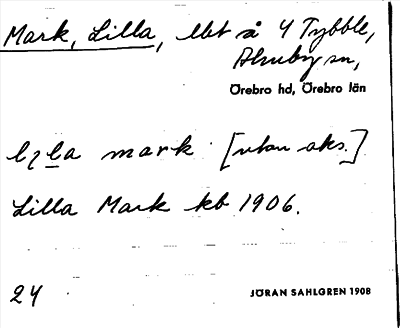 Mark, Lilla, lht å 4 Tybble,
Almby sn,
Örebro hd, Örebro län
mark [utan aks.]
Lilla Mark kb 1906.
24 JÖRAN SAHLGREN 1908